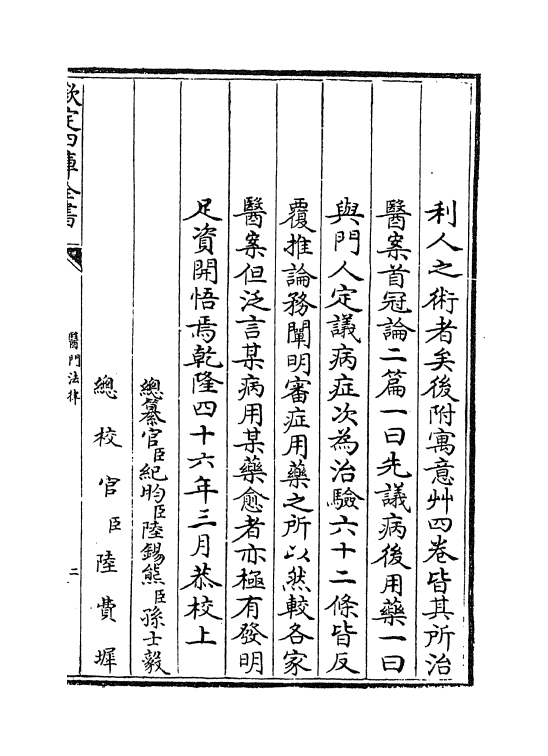 利人之術者矣後附寓意艸四卷皆其所治
醫案首冠論二篇一曰先議病後用藥一曰
與門人定議病症次為治驗六十二條皆反
覆推論務闡明審症用藥之所以然較各家
醫案但泛言某病用某藥愈者亦極有發明
足資開悟焉乾隆四十六年三月恭校上
總纂官臣紀昀臣陸錫熊臣孫士毅
總校官臣陸費墀
欽定四庫全書
醫門法律
二